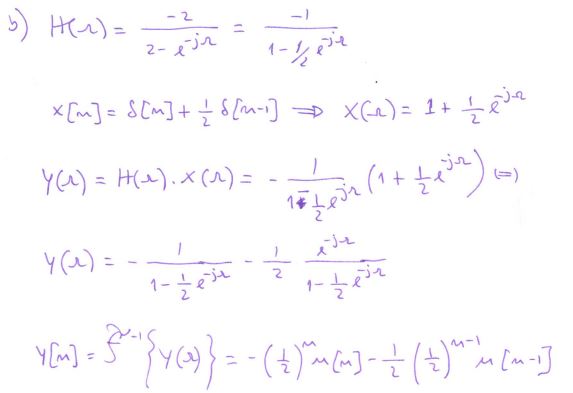 b) H(Ω) = -2 / (2 - e^{-jΩ}) = -1 / (1 - 1/2 e^{-jΩ})
x[n] = δ[n] + 1/2 δ[n-1] ⟹ X(Ω) = 1 + 1/2 e^{-jΩ}
Y(Ω) = H(Ω) . X(Ω) = - 1 / (1 - 1/2 e^{-jΩ}) (1 + 1/2 e^{-jΩ}) (=)
Y(Ω) = - 1 / (1 - 1/2 e^{-jΩ}) - 1/2 e^{-jΩ} / (1 - 1/2 e^{-jΩ})
y[n] = F^{-1} {Y(Ω)} = -(1/2)^n u[n] - 1/2 (1/2)^{n-1} u[n-1]